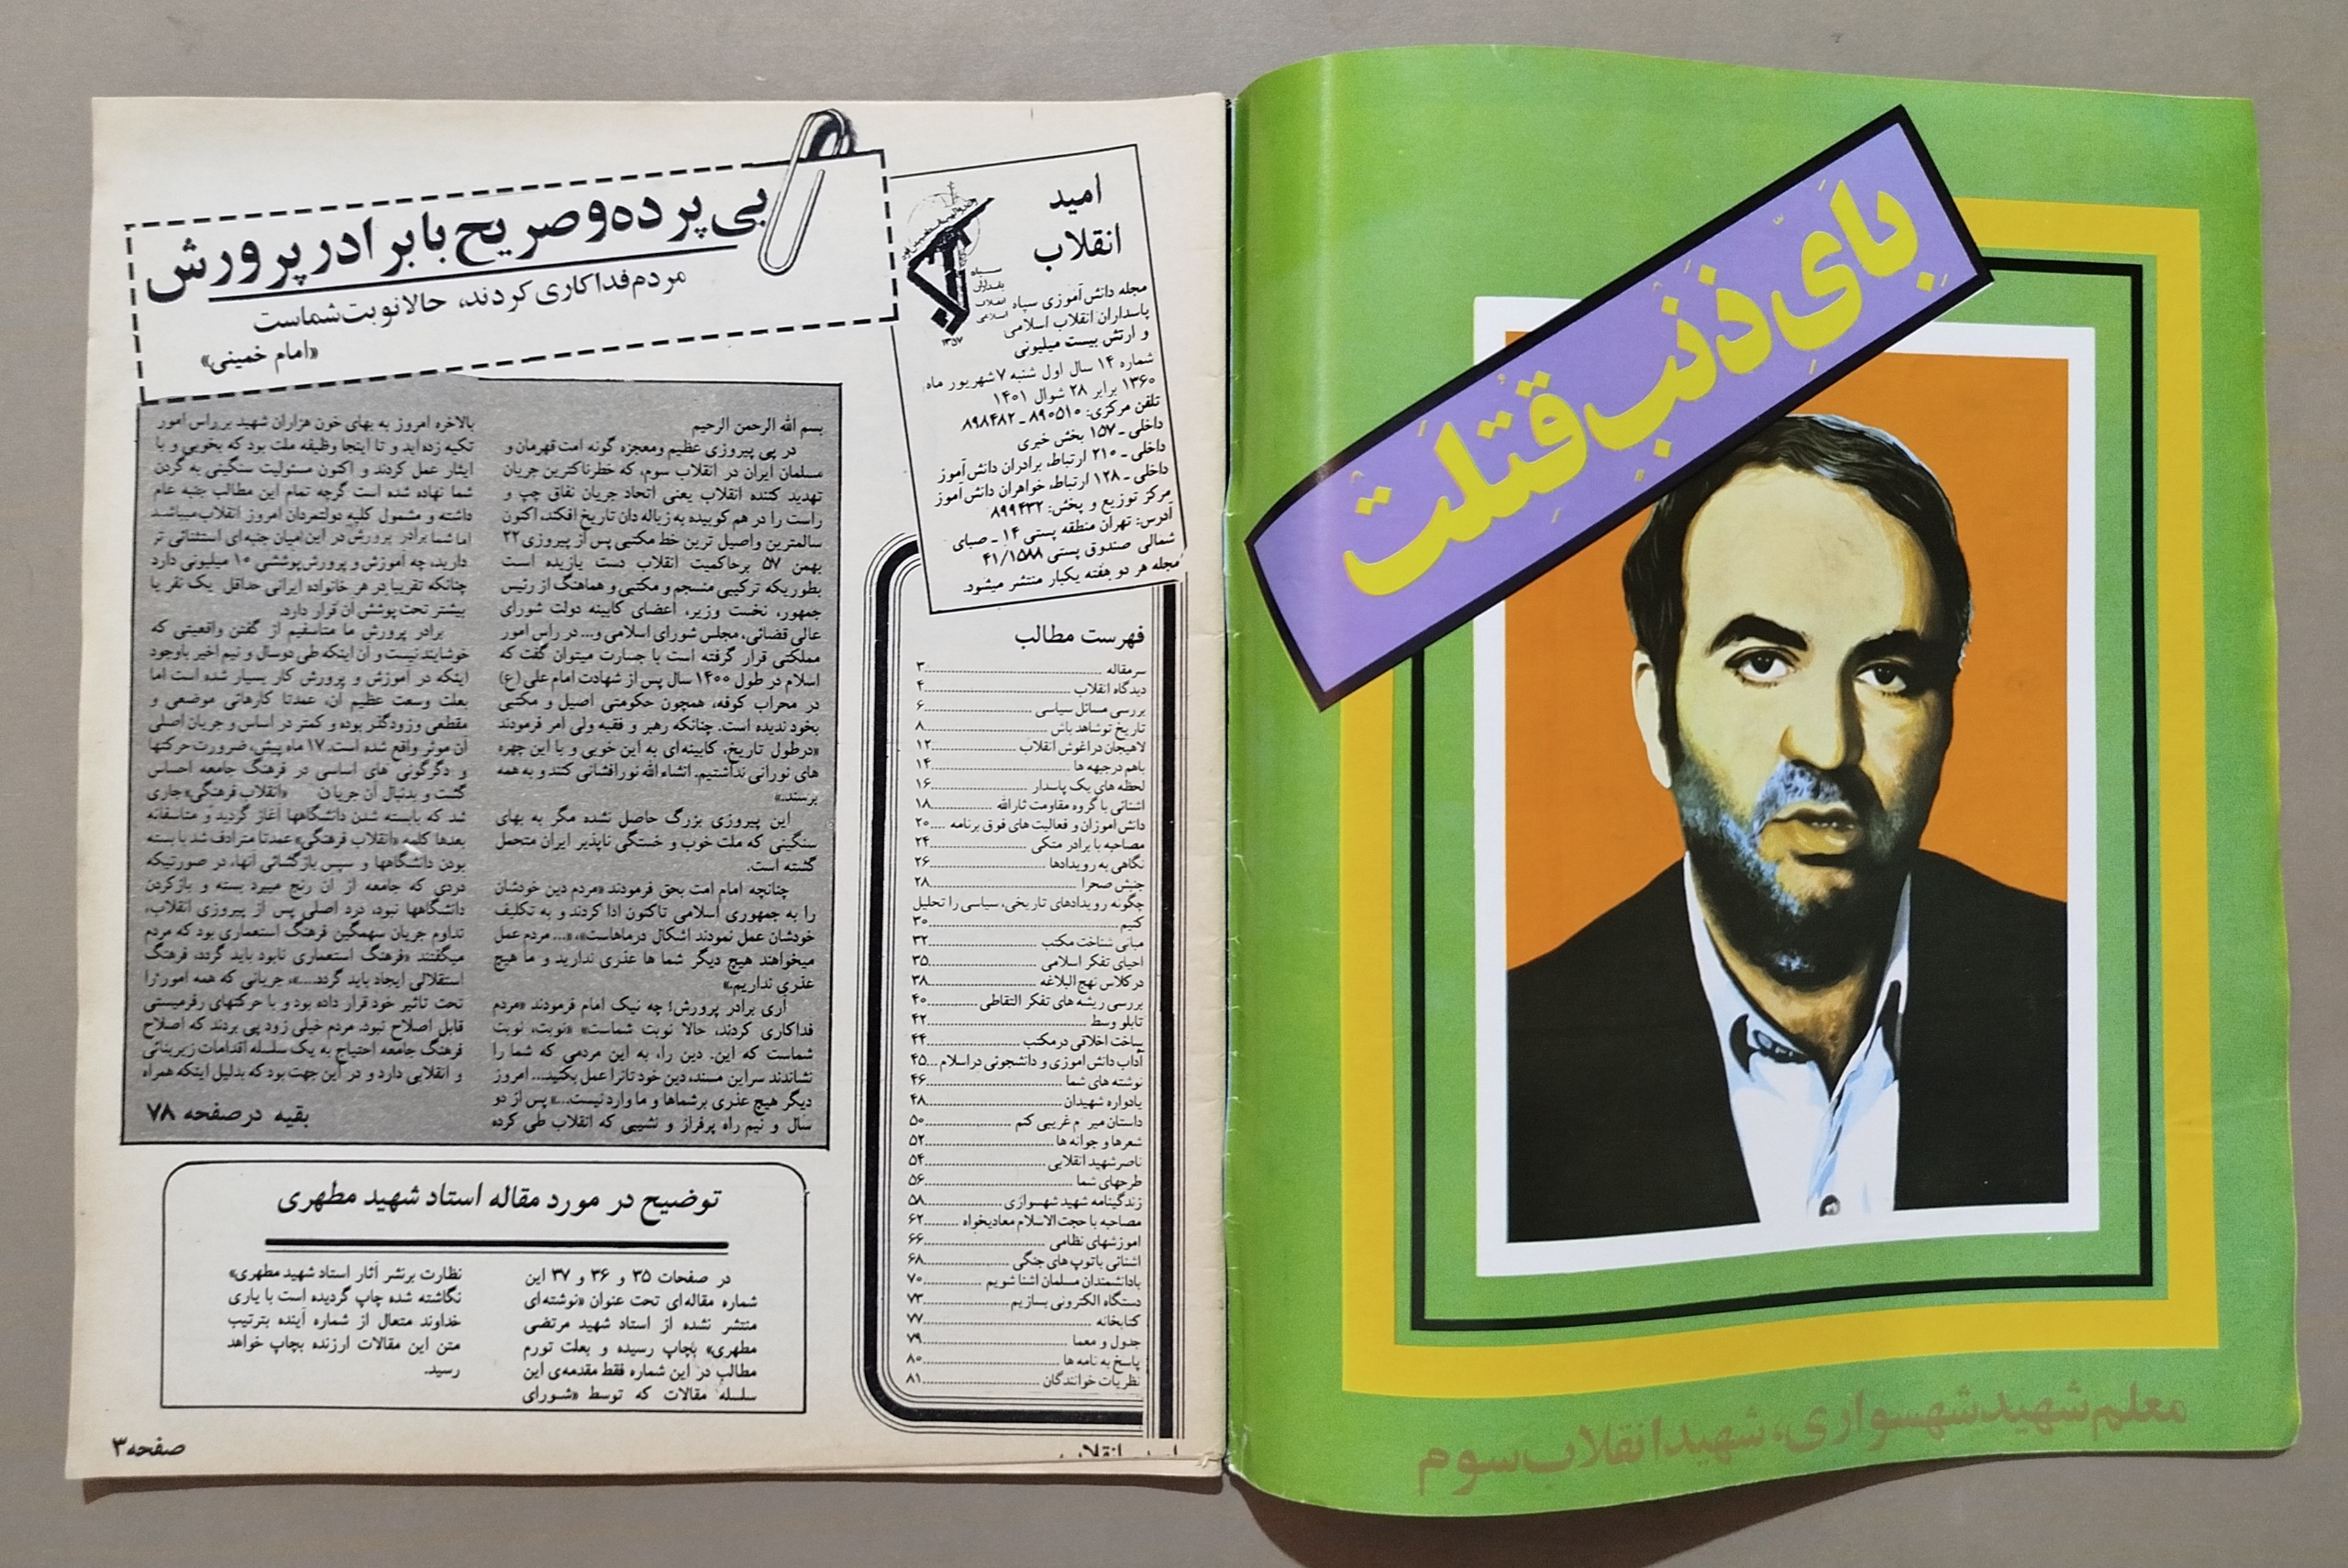 بِاَیِّ ذَنْبٍ قُتِلَتْ
معلم شهید شهسواری، شهید انقلاب سوم
امید
انقلاب
سپاه
پاسداران
انقلاب
اسلامی
۱۳۵۷
مجله دانش‌آموزی سپاه
پاسداران انقلاب اسلامی
و ارتش بیست میلیونی
شماره ۱۴ سال اول شنبه ۷ شهریور ماه
۱۳۶۰ برابر ۲۸ شوال ۱۴۰۱
تلفن مرکزی: ۸۹۰۵۱۰ ـ ۸۹۸۴۸۲
داخلی ـ ۱۵۷ بخش خبری
داخلی ـ ۲۱۰ ارتباط، برادران دانش‌آموز
داخلی ـ ۱۲۸ ارتباط، خواهران دانش‌آموز
مرکز توزیع و پخش: ۸۹۹۴۳۲
آدرس: تهران منطقه پستی ۱۴ ـ صبای
شمالی صندوق پستی ۴۱/۱۵۸۸
مجله هر دو هفته یکبار منتشر میشود.
فهرست مطالب
سرمقاله ۳
دیدگاه انقلاب ۴
بررسی مسائل سیاسی ۶
تاریخ تو شاهد باش ۸
لاهیجان در اغوش انقلاب ۱۲
باهم در جبهه ها ۱۴
لحظه های یک پاسدار ۱۶
اشنائی با گروه مقاومت ثارالله ۱۸
دانش اموزان و فعالیت های فوق برنامه ۲۰
مصاحبه با برادر متکی ۲۴
نگاهی به رویدادها ۲۶
جنبش صحرا ۲۸
چگونه رویدادهای تاریخی، سیاسی را تحلیل
کنیم ۳۰
مبانی شناخت مکتب ۳۲
احیای تفکر اسلامی ۳۵
در کلاس نهج البلاغه ۳۸
بررسی ریشه های تفکر التقاطی ۴۰
تابلو وسط ۴۲
ساخت اخلاقی در مکتب ۴۴
آداب دانش اموزی و دانشجوئی در اسلام ۴۵
نوشته های شما ۴۶
یادواره شهیدان ۴۸
داستان میر م غریبی کنم ۵۰
شعرها و جوانه ها ۵۲
ناصر شهید انقلابی ۵۴
طرحهای شما ۵۶
زندگینامه شهید شهسواری ۵۸
مصاحبه با حجت الاسلام معادیخواه ۶۲
اموزشهای نظامی ۶۶
اشنائی با توپ های جنگی ۶۸
با دانشمندان مسلمان اشنا شویم ۷۰
دستگاه الکترونی بسازیم ۷۳
کتابخانه ۷۷
جدول و معما ۷۹
پاسخ به نامه ها ۸۰
نظریات خوانندگان ۸۱
بی پرده و صریح با برادر پرورش
مردم فداکاری کردند، حالا نوبت شماست
«امام خمینی»
بسم الله الرحمن الرحیم
در پی پیروزی عظیم و معجزه گونه امت قهرمان و
مسلمان ایران در انقلاب سوم، که خطرناکترین جریان
تهدید کننده انقلاب یعنی اتحاد جریان نفاق چپ و
راست را در هم کوبیده به زباله دان تاریخ افکند، اکنون
سالمترین واصیل ترین خط مکتبی پس از پیروزی ۲۲
بهمن ۵۷ برحاکمیت انقلاب دست یازیده است
بطوریکه ترکیبی منسجم و مکتبی و هماهنگ از رئیس
جمهور، نخست وزیر، اعضای کابینه دولت شورای
عالی قضائی، مجلس شورای اسلامی و... در راس امور
مملکتی قرار گرفته است با جسارت میتوان گفت که
اسلام در طول ۱۴۰۰ سال پس از شهادت امام علی (ع)
در محراب کوفه، همچون حکومتی اصیل و مکتبی
بخود ندیده است. چنانکه رهبر و فقیه ولی امر فرمودند
«درطول تاریخ، کابینه‌ای به این خوبی و با این چهره
های نورانی نداشتیم. انشاء الله نورافشانی کنند و به همه
برسند.»
این پیروزی بزرگ حاصل نشده مگر به بهای
سنگینی که ملت خوب و خستگی ناپذیر ایران متحمل
گشته است.
چنانچه امام امت بحق فرمودند «مردم دین خودشان
را به جمهوری اسلامی تاکنون ادا کردند و به تکلیف
خودشان عمل نمودند اشکال درماهاست»، «... مردم عمل
میخواهند هیچ دیگر شما ها عذری ندارید و ما هیچ
عذری نداریم.»
آری برادر پرورش! چه نیک امام فرمودند «مردم
فداکاری کردند، حالا نوبت شماست» «نوبت، نوبت
شماست که این. دین را، به این مردمی که شما را
نشاندند سراین مسند، دین خود تانرا عمل بکنید... امروز
دیگر هیچ عذری برشماها و ما وارد نیست...» پس از دو
سال و نیم راه پرفراز و نشیبی که انقلاب طی کرده
بالاخره امروز به بهای خون هزاران شهید بر راس امور
تکیه زده‌اید و تا اینجا وظیفه ملت بود که بخوبی و با
ایثار عمل کردند و اکنون مسئولیت سنگینی به گردن
شما نهاده شده است گرچه تمام این مطالب جنبه عام
داشته و مشمول کلیه دولتمردان امروز انقلاب میباشد
اما شما برادر پرورش در این میان جنبه‌ای استثنائی تر
دارید، چه آموزش و پرورش پوششی ۱۰ میلیونی دارد
چنانکه تقریبا در هر خانواده ایرانی حداقل یک نفر یا
بیشتر تحت پوشش آن قرار دارد.
برادر پرورش ما متاسفیم از گفتن واقعیتی که
خوشایند نیست و آن اینکه طی دوسال و نیم اخیر باوجود
اینکه در آموزش و پرورش کار بسیار شده است اما
بعلت وسعت عظیم آن، عمدتا کارهائی موضعی و
مقطعی وزودگذر بوده و کمتر در اساس و جریان اصلی
آن موثر واقع شده است. ۱۷ ماه پیش، ضرورت حرکتها
و دگرگونی های اساسی در فرهنگ جامعه احساس
گشت و بدنبال آن جریان «انقلاب فرهنگی» جاری
شد که بابسته شدن دانشگاهها آغاز گردید و متاسفانه
بعدها کلمه «انقلاب فرهنگی» عمدتا مترادف شد با بسته
بودن دانشگاهها و سپس بازگشائی آنها، در صورتیکه
دردی که جامعه از آن رنج میبرد بسته و بازکردن
دانشگاهها نبود، درد اصلی پس از پیروزی انقلاب،
تداوم جریان سهمگین فرهنگ استعماری بود که مردم
میگفتند «فرهنگ استعماری نابود باید گردد، فرهنگ
استقلالی ایجاد باید گردد...»، جریانی که همه امور را
تحت تاثیر خود قرار داده بود و با حرکتهای رفرمیستی
قابل اصلاح نبود. مردم خیلی زود پی بردند که اصلاح
فرهنگ جامعه احتیاج به یک سلسله اقدامات زیربنائی
و انقلابی دارد و در این جهت بود که بدلیل اینکه همراه
بقیه درصفحه ۷۸
توضیح در مورد مقاله استاد شهید مطهری
در صفحات ۳۵ و ۳۶ و ۳۷ این
شماره مقاله‌ای تحت عنوان «نوشته‌ای
منتشر نشده از استاد شهید مرتضی
مطهری» بچاپ رسیده و بعلت تورم
مطالب در این شماره فقط مقدمه‌ی این
سلسله مقالات که توسط «شورای
نظارت برنشر آثار استاد شهید مطهری»
نگاشته شده چاپ گردیده است با یاری
خداوند متعال از شماره آینده بترتیب
متن این مقالات ارزنده بچاپ خواهد
رسید.
صفحه ۳